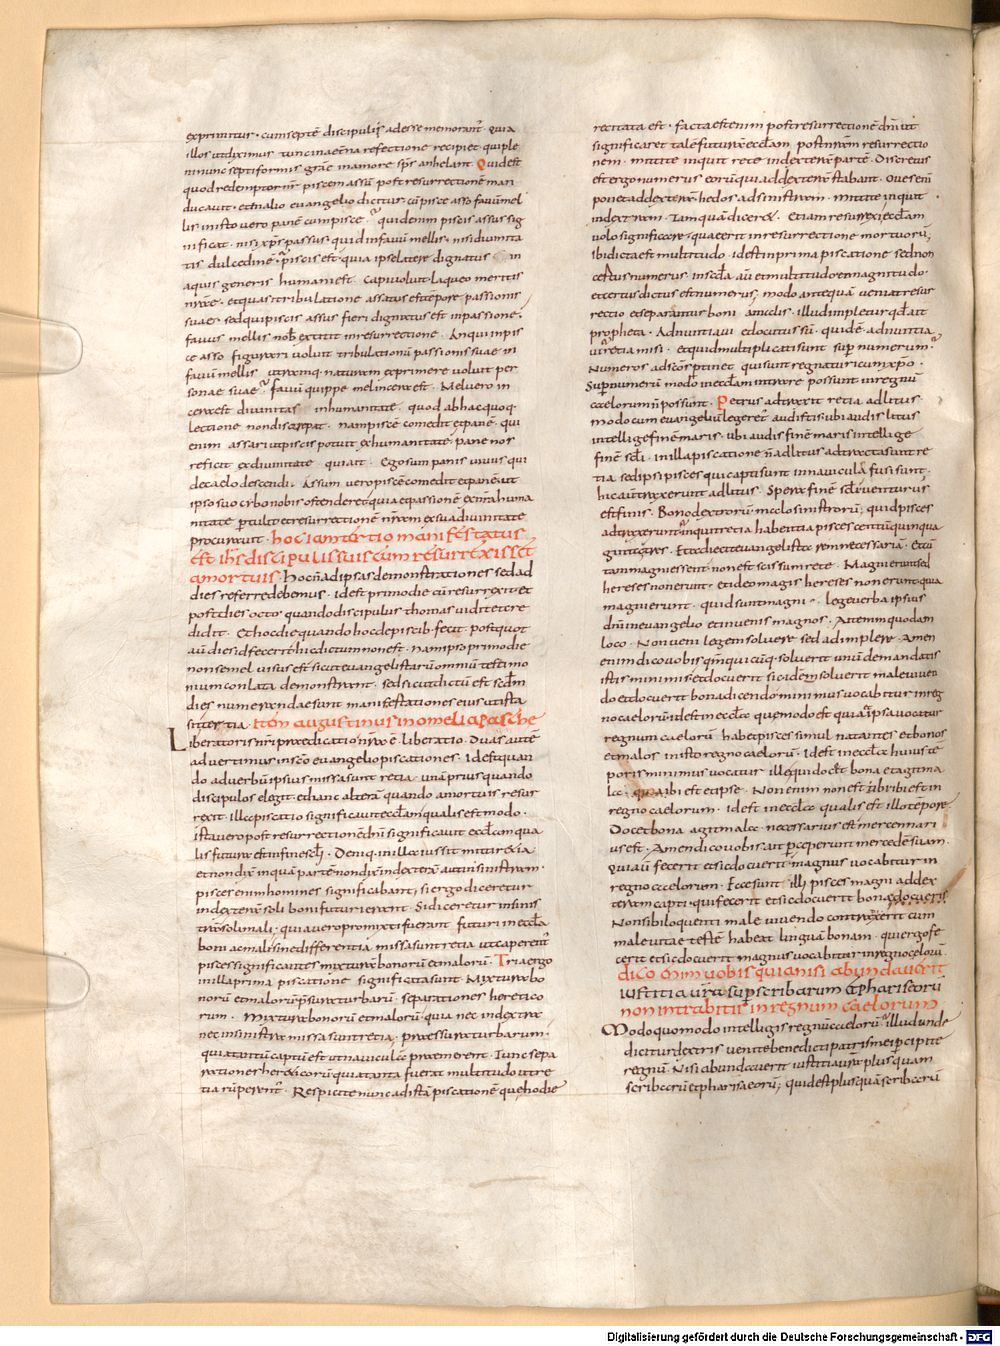 exprimitur · cum septē discipulis adesse memorant̄ · quia
illos ut diximus tunc in aeterna refectione recipiet qui ple
nimunc septiformis grāe in amore sp̄s anhelant Quid est
quod redemptor nr̄ piscem assū post resurrectionē man
ducavit · et in alio evangelio dictus cū pisce asso favū mel
lis in isto vero panē cum pisce · quid enim piscis assus sig
nificat · nisi xp̄s passus · quid in favū mellis · nisi divinita
tis dulcedinē · piscis est quia ipse latere dignatus in
aquis generis humani est · capi voluit laqueo mortis
nr̄ae · et quasi tribulatione assatus est tēpore passionis
suae · sed qui piscis assus fieri dignatus est in passione ·
favus mellis nob̄ extitit in resurrectione · An qui in pis
ce asso figurari voluit tribulationū passionis suae in
favū mellis utramq· naturam exprimere voluit per
sonae suae · favū quippe mel in cera est · Mel vero in
cera est divinitas in humanitate quod ab hac quoq·
lectione non discrepat · nam piscē comedit et panē · qui
enim assari ut piscis potuit ex humanitate · pane nos
reficit ex divinitate qui ait · Ego sum panis vivus qui
de caelo descendi · Assum vero piscē comedit et panē ut
ipso suo cybo nobis ostenderet quia et passionē ex nr̄a huma
nitate p̄tulit et resurrectionē nr̄am ex sua divinitate
procuravit · hoc iam tertio manifestatus
est ih̄s discipulis suis cum resurrexisset
a mortuis · Hoc ñ ad ipsas demonstrationes sed ad
dies referre debemus · id est primo die cū resurrexit et
post dies octo quando discipulus thomas vidit et cre
didit · Et hoc die quando hoc de piscib· fecit · post quot
aū dies id fecerit hic dictum non est · nam ipso primo die
non semel visus est sicut evangelistarū omniū testimo
nium conlata demonstrant · sed sicut dictū est secd̄m
dies numeranda e sunt manifestationes eius ut ista
sit tertia · Item augustinus in omelia pasche
Liberatoris nr̄i praedicatio nr̄a ē liberatio · Duas autē
advertimus in sc̄o evangelio piscationes · Id est quan
do ad verbū ipsius missa sunt retia · unā prius quando
discipulos elegit · et hanc alterā quando a mortuis resur
rexit · illa piscatio significavit eccl̄am qualis est modo ·
ista vero post resurrectionē dn̄i significavit eccl̄am qua
lis futura est in fine scl̄i · Deniq· in illa iussit mitti retia
et non dix̄ in qua parte non dix̄ in dexterā aut in sinistram ·
pisces enim homines significabant · si ergo diceretur
in dexterā soli boni futuri erant · Si diceretur in sinis
trā soli mali · quia vero promixti fuerant futuri in eccl̄a
boni ac mali sine differentia missa sunt retia ut caperent̄
pisces significantes mixturā bonorū et malorū · Tria ergo
in illa prima piscatione significata sunt · Mixtura bo
norū et malorū pressura turbarū · separationes heretico
rum · Mixtura bonorū et malorū · quia nec in dextrā
nec in sinistrā missa sunt retia · praessura turbarum ·
quia tantū captū est ut naviculae praemerent · Iunc sepa
rationes hereticorū quia tanta fuerat multitudo ut re
tia rūperent̄ · Respicite nunc ad istā piscationē que hodie
recitata est · facta est enim post resurrectionē dn̄i ut
significaret talē futurā eccl̄am post nr̄am resurrectio
nem · mittite inquit rete in dexterā partē · Discretus
est ergo numerus eorū qui ad dexterā stabant · Oves enī
ponet ad dexterā · hedos ad sinistram · mittite inquit
in dexteram · Tamquā diceret · Etiam resurrexi eccl̄am
volo significare quae erit in resurrectione mortuorū;
ibi dicta est multitudo · id est in prima piscatione sed non
certus numerus in secda aū et multitudo et magnitudo ·
et certus dictus est numerus; modo antequā veniat resur
rectio et separantur boni a malis · illud impletur qd̄ ait
propheta · Adnuntiavi et locutus sū · quid ē adnuntia
vi retia misi · et quid multiplicati sunt sup̄ numerum ·
Numeros adscorptinet qui sunt regnaturi cum xp̄o ·
Sup̄ numerū modo in eccl̄am intrare possunt in regnū
caelorum n̄ possunt · Petrus adtraxit retia ad litus
modo cum evangeliū legeret̄ audistis · ubi audis litus
intellige finē maris · ubi audis finē maris intellige
finē scl̄i · in illa piscatione n̄ ad litus adtracta sunt re
tia sed ipsi pisces qui capti sunt in naviculā fusi sunt ·
hic aūt traxerunt ad litus · Spera finē scl̄i venturus
est finis · Bono dextrorū malo sinistrorū; quid pisces
adtraxerunt inquit retia habentia pisces centū quinqua
ginta tres · Et addidit evangelista rem necessariā · Et cū
tam magni essent non est scissum rete · Magni erunt sed
hereses non erunt · et ideo magis hereses non erunt quia
magni erunt · quid sunt magni · lege verba ipsius
dn̄i in evangelio et invenis magnos · Ait enim quodam
loco · Non veni legem solvere sed adimplere · Amen
enim dico vobis qm̄ quicūq· solverit unū de mandatis
istis minimis et docuerit sic · id ē solverit male viven
do et docuerit bona dicendo minimus vocabitur in reg
no caelorū · id est in eccl̄a que modo est quia ipsa vocatur
regnum caelorū habet pisces simul natantes et bonos
et malos in isto regno caelorū · Id est in eccl̄a huius tē
poris minimus vocatur ille qui docet bona et agit ma
la · quia ibi est et ipse · Non enim non est ubi ibi est in
regno caelorum · id est in eccl̄a qualis est illo tēpore
Docet bona agit mala · necessarius est mercennari
us est · Amen dico vobis ait p̄ceperunt mercedē suam ·
Qui aū fecerit et sic docuerit magnus vocabitur in
regno caelorum · Ecce sunt illi pisces magni ad dex
teram capti · qui fecerit et sic docuerit bona docueris
Non sibi loquenti male vivendo contraxerit cum
male vitae testē habeat linguā bonam · qui ergo fe
cerit et sic docuerit magnus vocabitur in regno celorū
dico enim vobis quia nisi abundaverit
iustitia vr̄a sup̄ scribarum et pharisaeorū
non intrabitis in regnum caelorum
Modo quomodo intelligis regnū caelorū illud unde
dicitur dextris venite benedicti patris mei p̄cipite
regnū · Nisi abundaverit iustitia vr̄a plus quam
scribarū et pharisaeorū; quid est plus quā scribarū
Digitalisierung gefördert durch die Deutsche Forschungsgemeinschaft - DFG